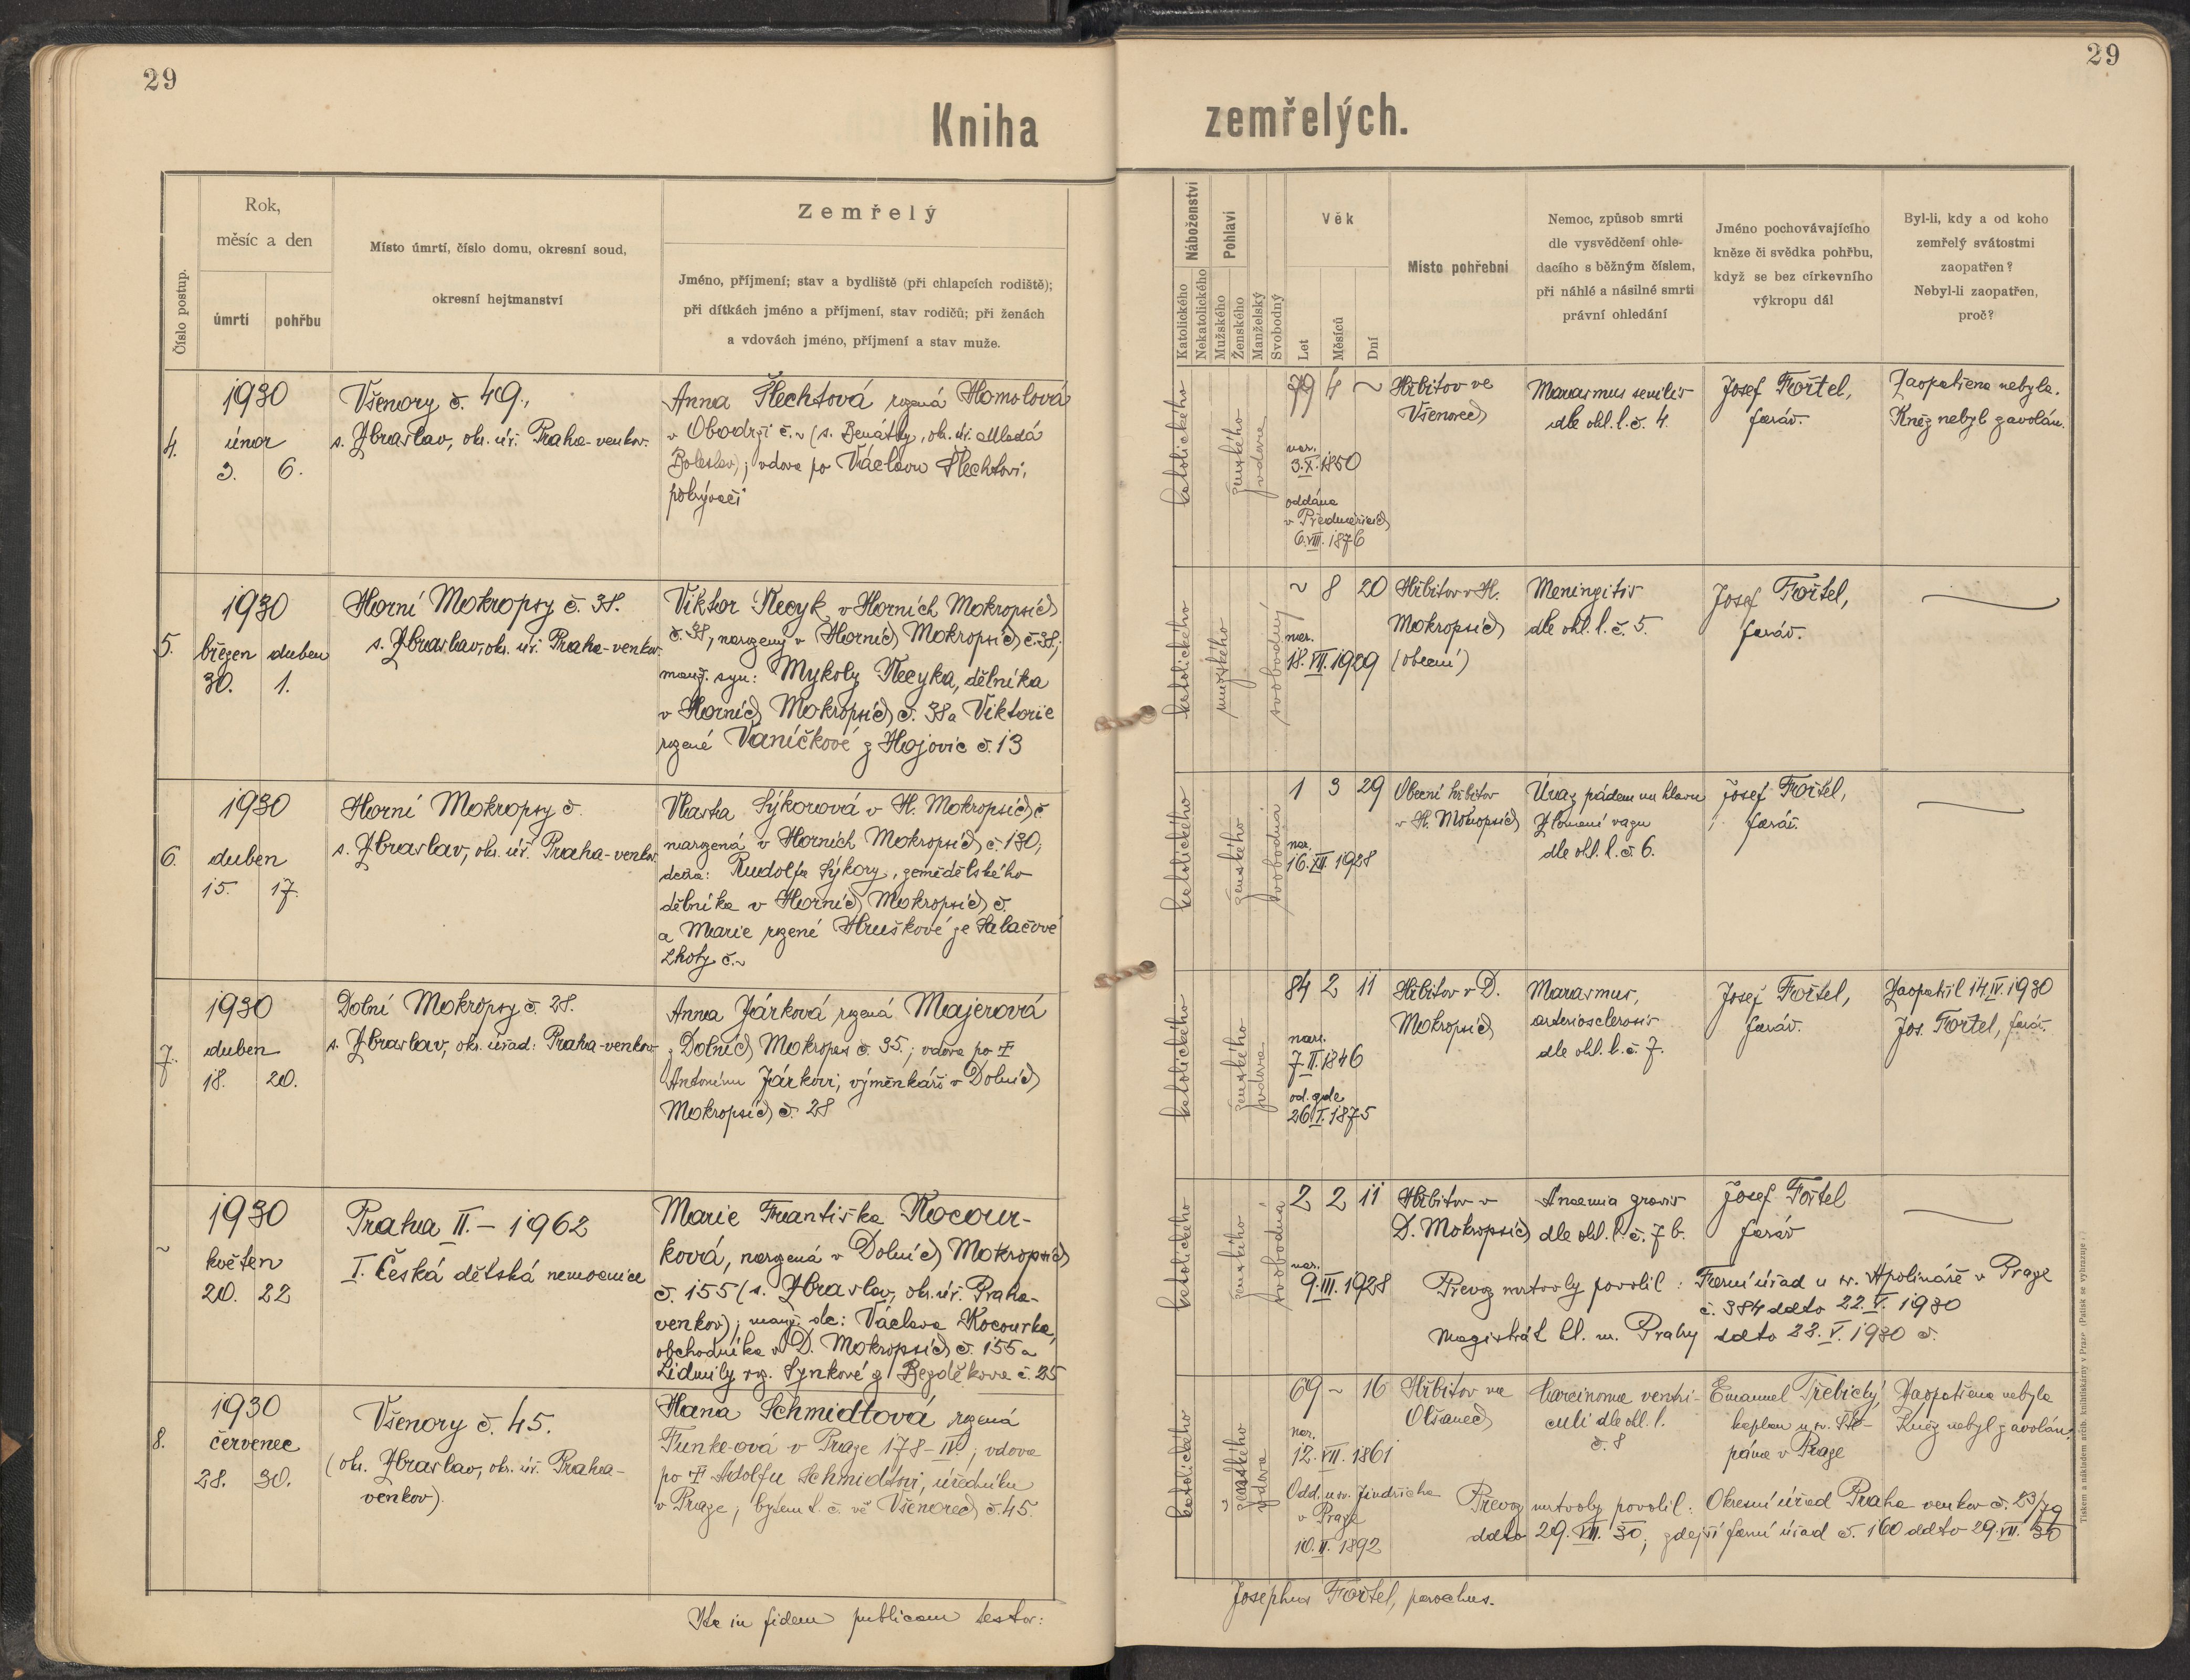 29
29
Kniha
zemřelých.
Číslo postup.
Rok,
měsíc a den
úmrtí
pohřbu
Místo úmrtí, číslo domu, okresní soud,
okresní hejtmanství
Zemřelý
Jméno, příjmení; stav a bydliště (při chlapcích rodiště);
při dítkách jméno a příjmení, stav rodičů; při ženách
a vdovách jméno, příjmení a stav muže.
Náboženství
Katolického
Nekatolického
Pohlaví
Mužského
Ženského
Manželský
Svobodný
Věk
Let
Měsíců
Dní
Místo pohřební
Nemoc, způsob smrti
dle vysvědčení ohle-
dacího s běžným číslem,
při náhlé a násilné smrti
právní ohledání
Jméno pochovávajícího
kněze či svědka pohřbu,
když se bez církevního
výkropu dál
Byl-li, kdy a od koho
zemřelý svátostmi
zaopatřen?
Nebyl-li zaopatřen,
proč?
4.
1930
únor
3. 6.
Všenory č. 49.,
s. Zbraslav, ok. úř. Praha-venkov.
Anna Šlechtová rozená Homolová
v Obodrži č. ~ (s. Benátky, ok. úř. Mladá
Boleslav); vdova po Václavu Šlechtovi,
pobývači
katolického
ženského
vdova
79 4 ~
nar.
3.X.1850
oddána
v Předměřicích
6.VIII.1876
Hřbitov ve
Všenorech
Marasmus senilis
dle ohl. l. č. 4.
Josef Fořtel,
farář.
Zaopatřena nebyla.
Kněz nebyl zavolán.
5.
1930
březen duben
30. 1.
Horní Mokropsy č. 38.
s. Zbraslav, ok. úř. Praha-venkov.
Viktor Kecyk v Horních Mokropsích
č. 38, narozený v Horních Mokropsích č. 38;
manž. syn: Mykoly Kecyka, dělníka
v Horních Mokropsích č. 38 a Viktorie
rozené Vaníčkové z Hojovic č. 13
katolického
mužského
svobodný
~ 8 20
nar.
18.VII.1929
Hřbitov v H.
Mokropsích
(obecní)
Meningitis
dle ohl. l. č. 5.
Josef Fořtel,
farář.
6.
1930
duben
15. 17.
Horní Mokropsy č.
s. Zbraslav, ok. úř. Praha-venkov
Vlasta Sýkorová v H. Mokropsích č.
narozená v Horních Mokropsích č. 130;
dcera: Rudolfa Sýkory, zemědělského
dělníka v Horních Mokropsích č.
a Marie rozené Hruškové ze Salačové
Lhoty č. ~
katolického
ženského
svobodná
1 3 29
nar.
16.XII.1928
Obecní hřbitov
v H. Mokropsích
Úraz pádem na hlavu
Zlomení vazu
dle ohl. l. č. 6.
Josef Fořtel,
farář.
7.
1930
duben
18. 20.
Dolní Mokropsy č. 28.
s. Zbraslav, ok. úřad: Praha-venkov
Anna Járková rozená Majerová
z Dolních Mokropes č. 35.; vdova po †
Antonínu Járkovi, výměnkáři v Dolních
Mokropsích č. 28
katolického
ženského
vdova
84 2 11
nar.
7.II.1846
od. zde
26.I.1875
Hřbitov v D.
Mokropsích
Marasmus,
arteriosclerosis
dle ohl. l. č. 7.
Josef Fořtel,
farář.
Zaopatřil 14.IV.1930
Jos. Fořtel, farář.
~
1930
květen
20. 22
Praha II. – 1962
I. Česká dětská nemocnice
Marie Františka Kocour-
ková, narozená v Dolních Mokropsích
č. 155 (s. Zbraslav, ok. úř. Praha-
venkov); manž. dc: Václava Kocourka,
obchodníka v D. Mokropsích č. 155 a
Lidmily roz. Synkové z Bezděkova č. 25
katolického
ženského
svobodná
2 2 11
nar.
9.III.1928
Hřbitov v
D. Mokropsích
Anaemia gravis
dle ohl. l. č. 7 b.
Josef Fořtel
farář
Převoz mrtvoly povolil: Farní úřad u sv. Apolináře v Praze
č. 384 ddto 22.V.1930
Magistrát hl. m. Prahy ddto 22.V.1930 č.
8.
1930
červenec
28. 30.
Všenory č. 45.
(ok. Zbraslav, ok. úř. Praha-
venkov).
Hana Schmidtová rozená
Funke-ová v Praze 178-IV.; vdova
po † Adolfu Schmidtovi, úředníku
v Praze; bytem t. č. ve Všenorech č. 45.
katolického
ženského
vdova
69 ~ 16
nar.
12.VII.1861
Odd. u sv. Jindřicha
v Praze
10.II.1892
Hřbitov na
Olšanech
Carcinoma ventri-
culi dle ohl. l.
č. 8
Emanuel Třebický,
kaplan u sv. Ště-
pána v Praze
Zaopatřena nebyla
Kněz nebyl zavolán.
Převoz mrtvoly povolil: Okresní úřad Praha venkov č. 23/79
ddto 29.VII.30; zdejší farní úřad č. 160 ddto 29.VII.30
Ita in fidem publicam testor:
Josephus Fořtel, parochus.
Tiskem a nákladem arcib. knihtiskárny v Praze. (Patisk se vyhrazuje.)